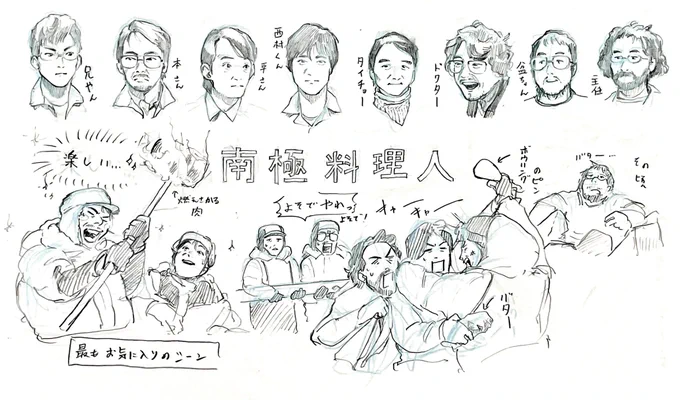 兄やん
本さん
平さん
西村くん
タイチョー
ドクター
盆ちゃん
主任
楽しい…
南極料理人
↑燃えさかる
肉
よそでやれっ
よそで!
オャー
キャー
ボウリング
のピン
バター…
その頃
バター
最もお気に入りのシーン